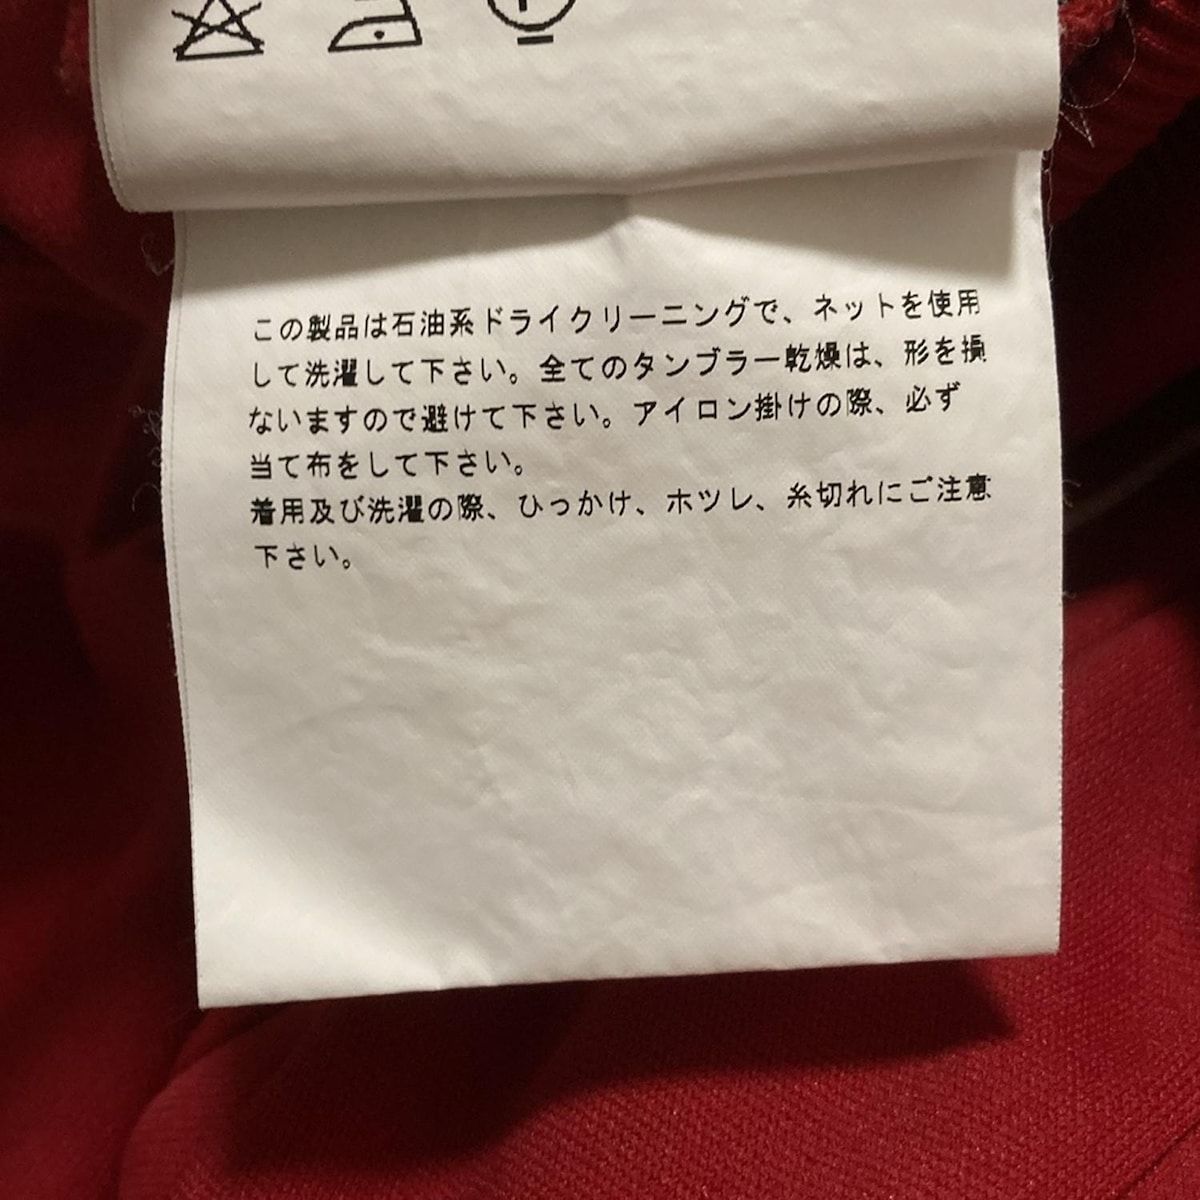 この製品は石油系ドライクリーニングで、ネットを使用
して洗濯して下さい。全てのタンブラー乾燥は、形を損
ないますので避けて下さい。アイロン掛けの際、必ず
当て布をして下さい。
着用及び洗濯の際、ひっかけ、ホツレ、糸切れにご注意
下さい。